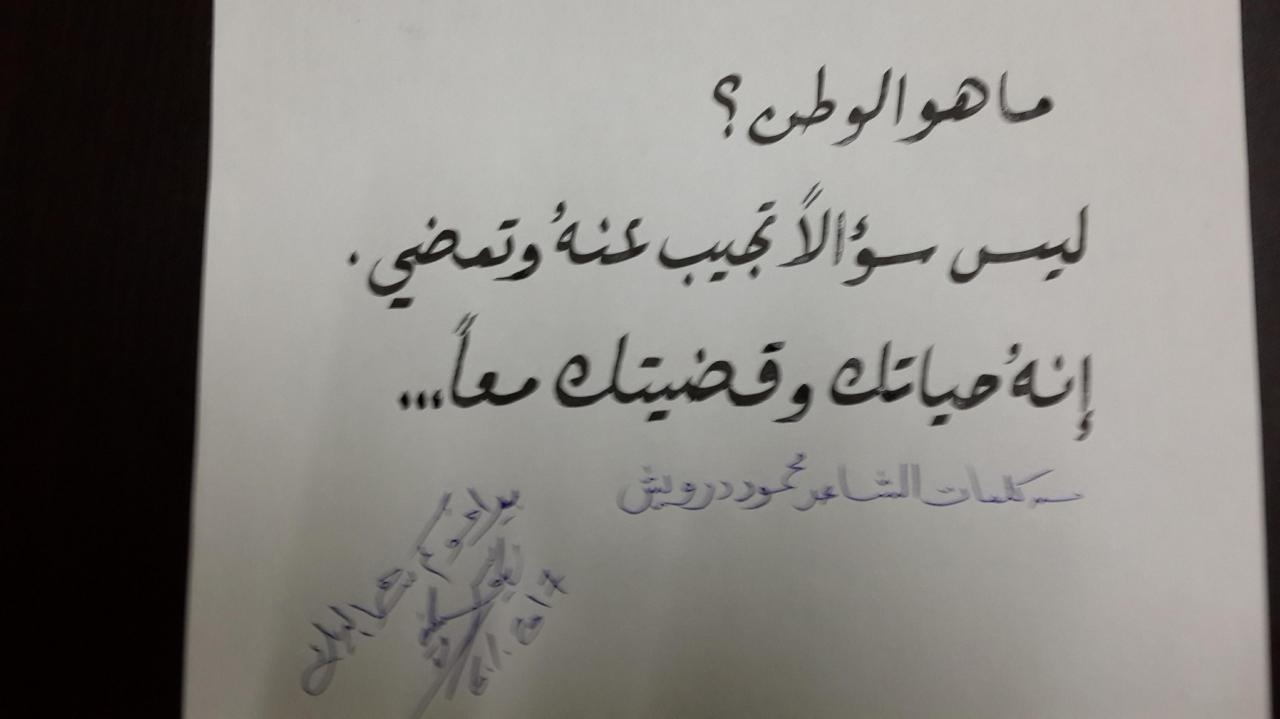 ما هو الوطن؟
ليس سؤالاً تجيب عنهُ وتمضي.
إنهُ حياتك وقضيتك معاً...
من كلمات الشاعر محمود درويش